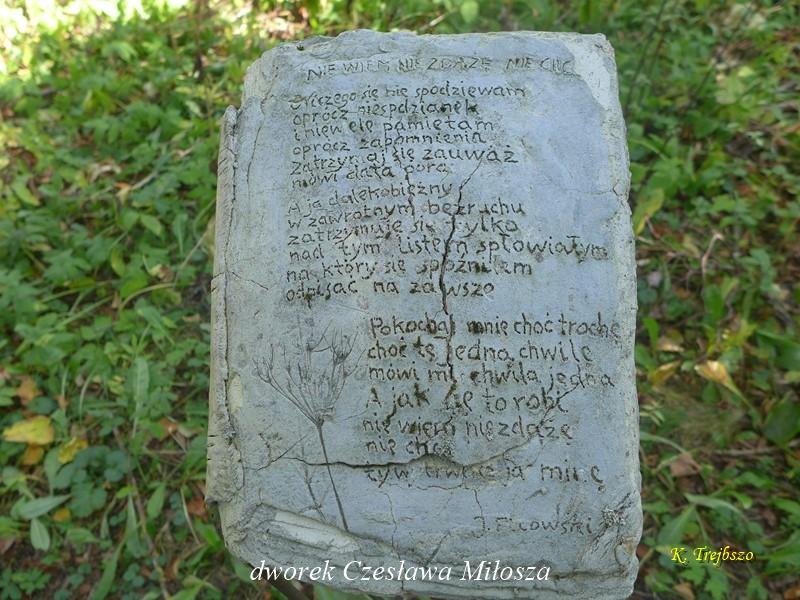 NIE WIEM NIE ZDĄŻĘ NIE CHCĘ
Niczego się nie spodziewam
oprócz niespdzianek
i niew elę pamiętam
oprócz zapomnienia
zatrzymaj się zauważ
mówi dala pora
A ja dalekobieżny
w zawrotnym bezruchu
zatrzymuję się tylko
nad tym listem spłowiałym
na który się spóźniłem
odpisać na zawsze
Pokochaj mnie choć trochę
choć tę jedną chwilę
mówi mi chwila jedna
A jak się to robi
nie wiem nie zdążę
nie chcę
ty w trwasz ja minę
J. Ficowski
dworek Czesława Miłosza
K. Trejbszo